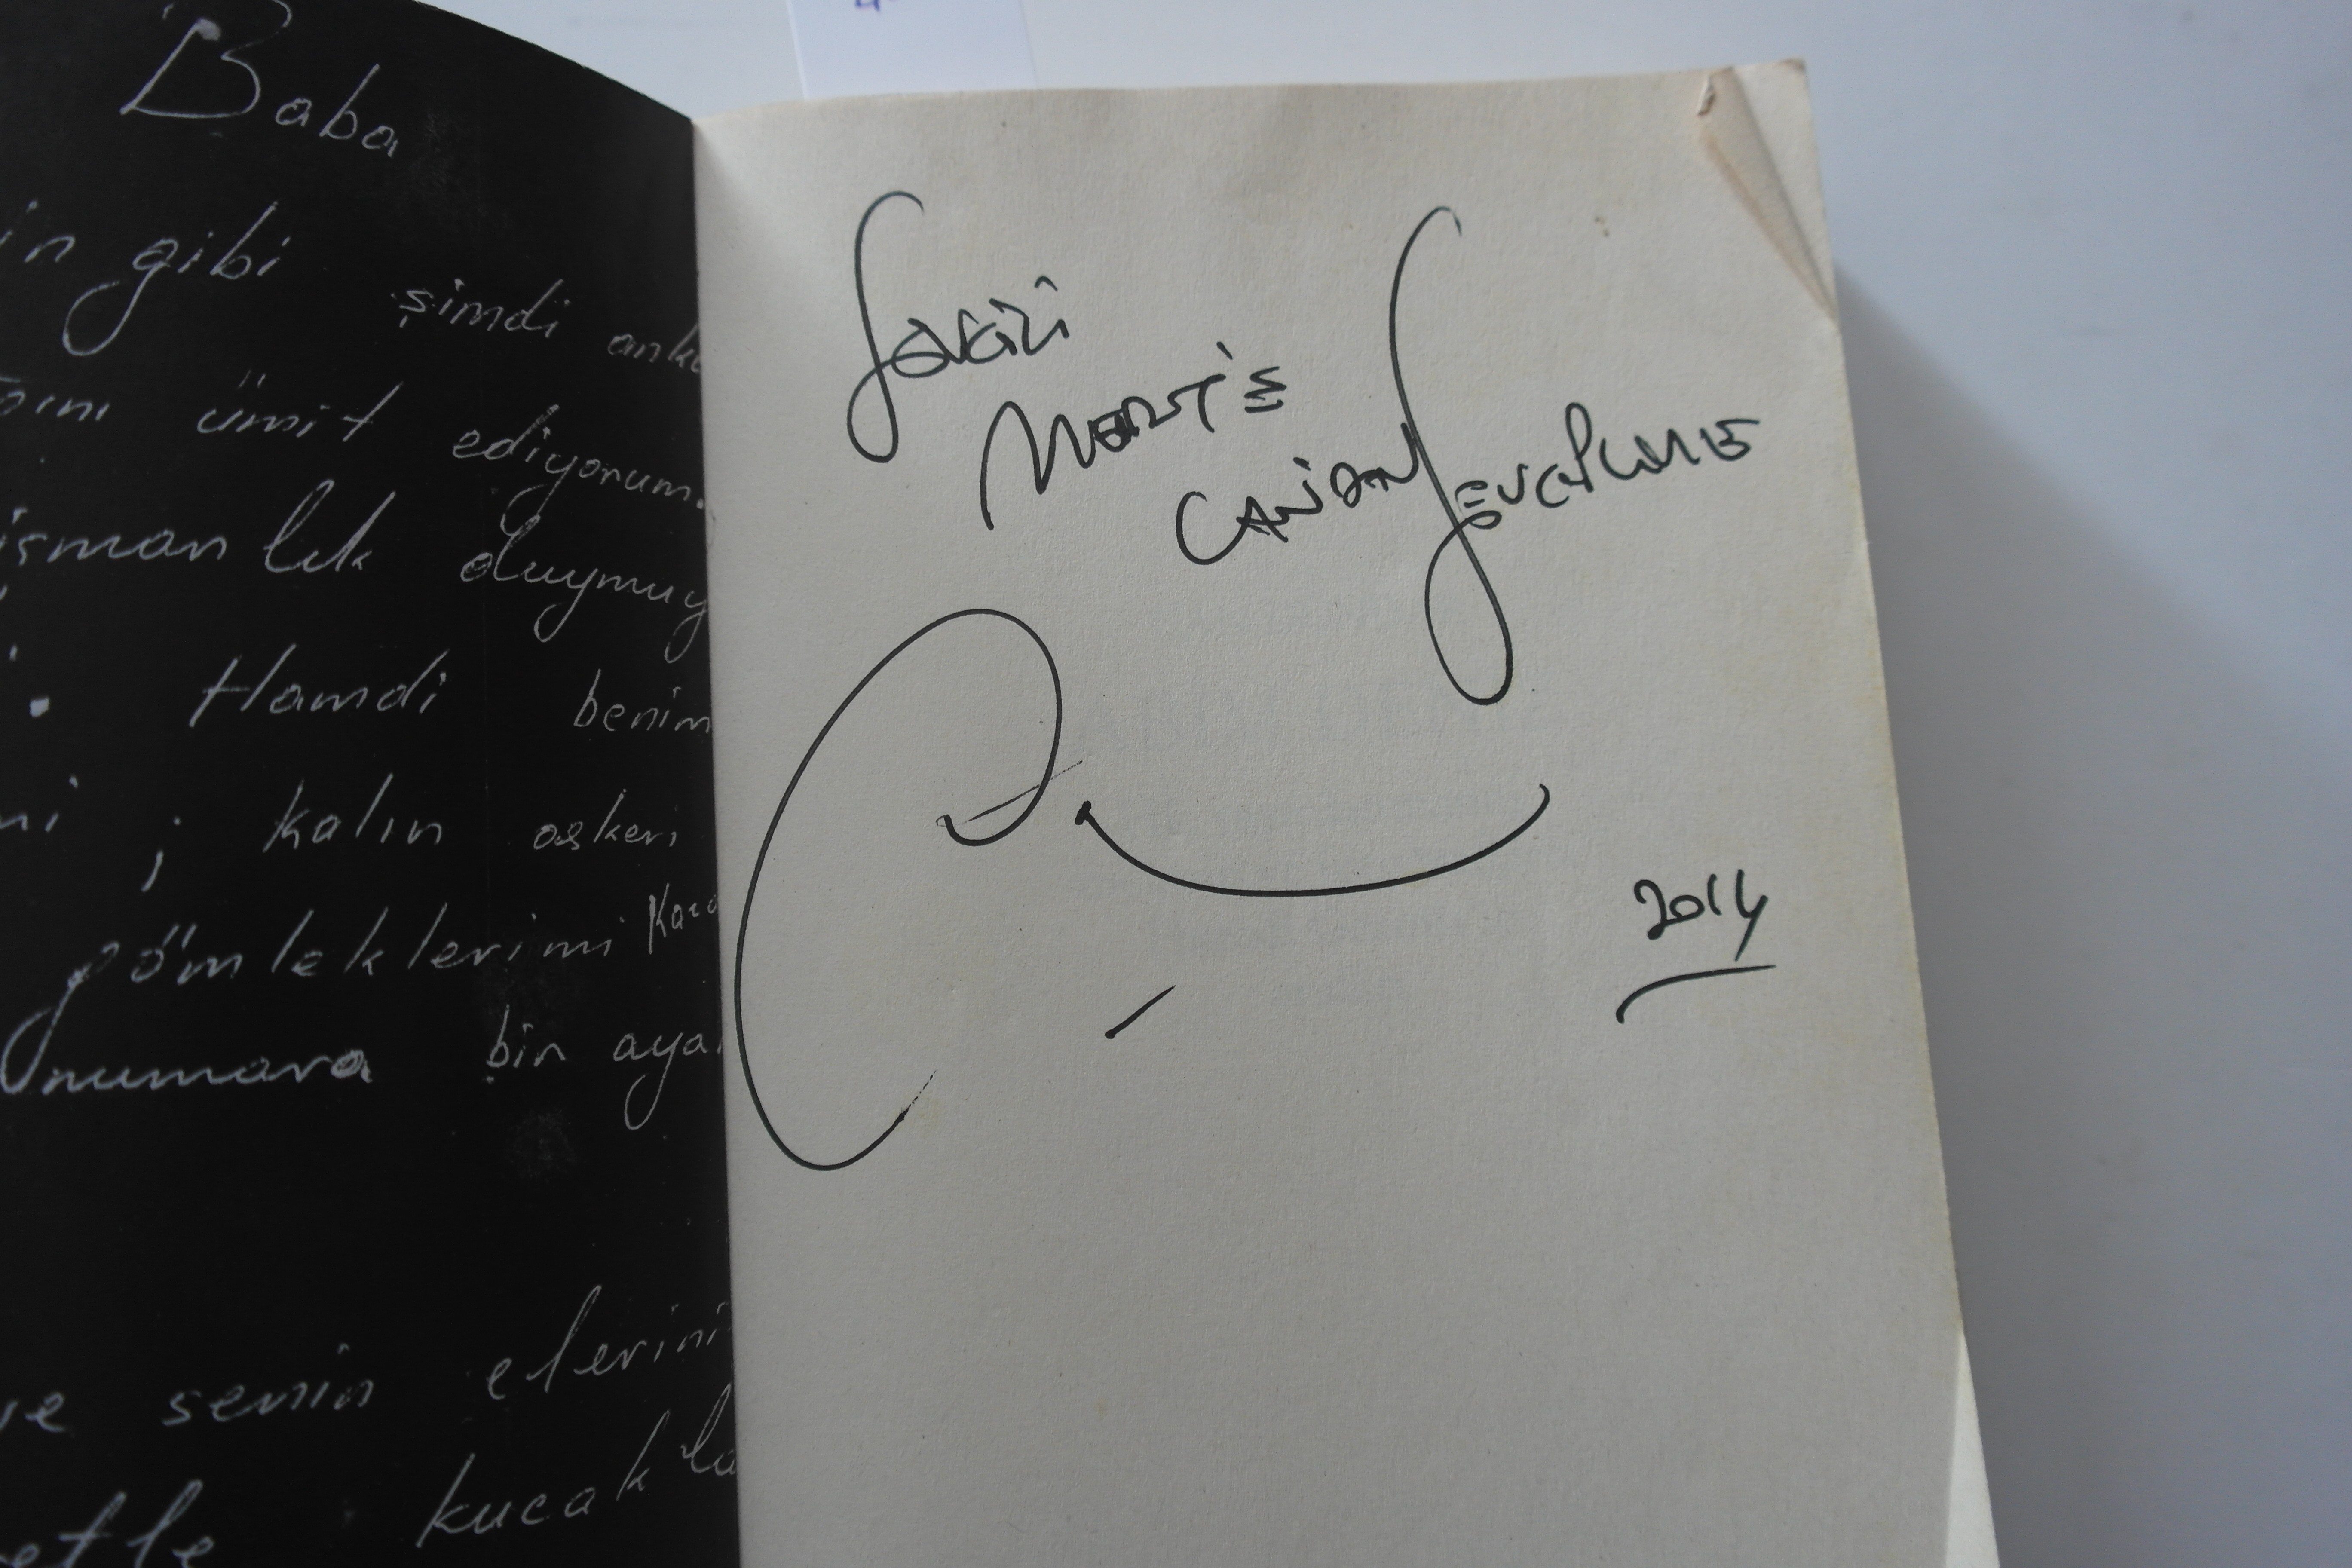 Baba
in gibi şimdi anka
ını ümit ediyorum.
işmanlık duymuy
Hamdi benim
mi ; kalın askeri
gömleklerimi Kara
numara bin aya
ve senin elerini
etle kucakla
Sevgili
Mert'e
Candan Sevgilerimle
2014